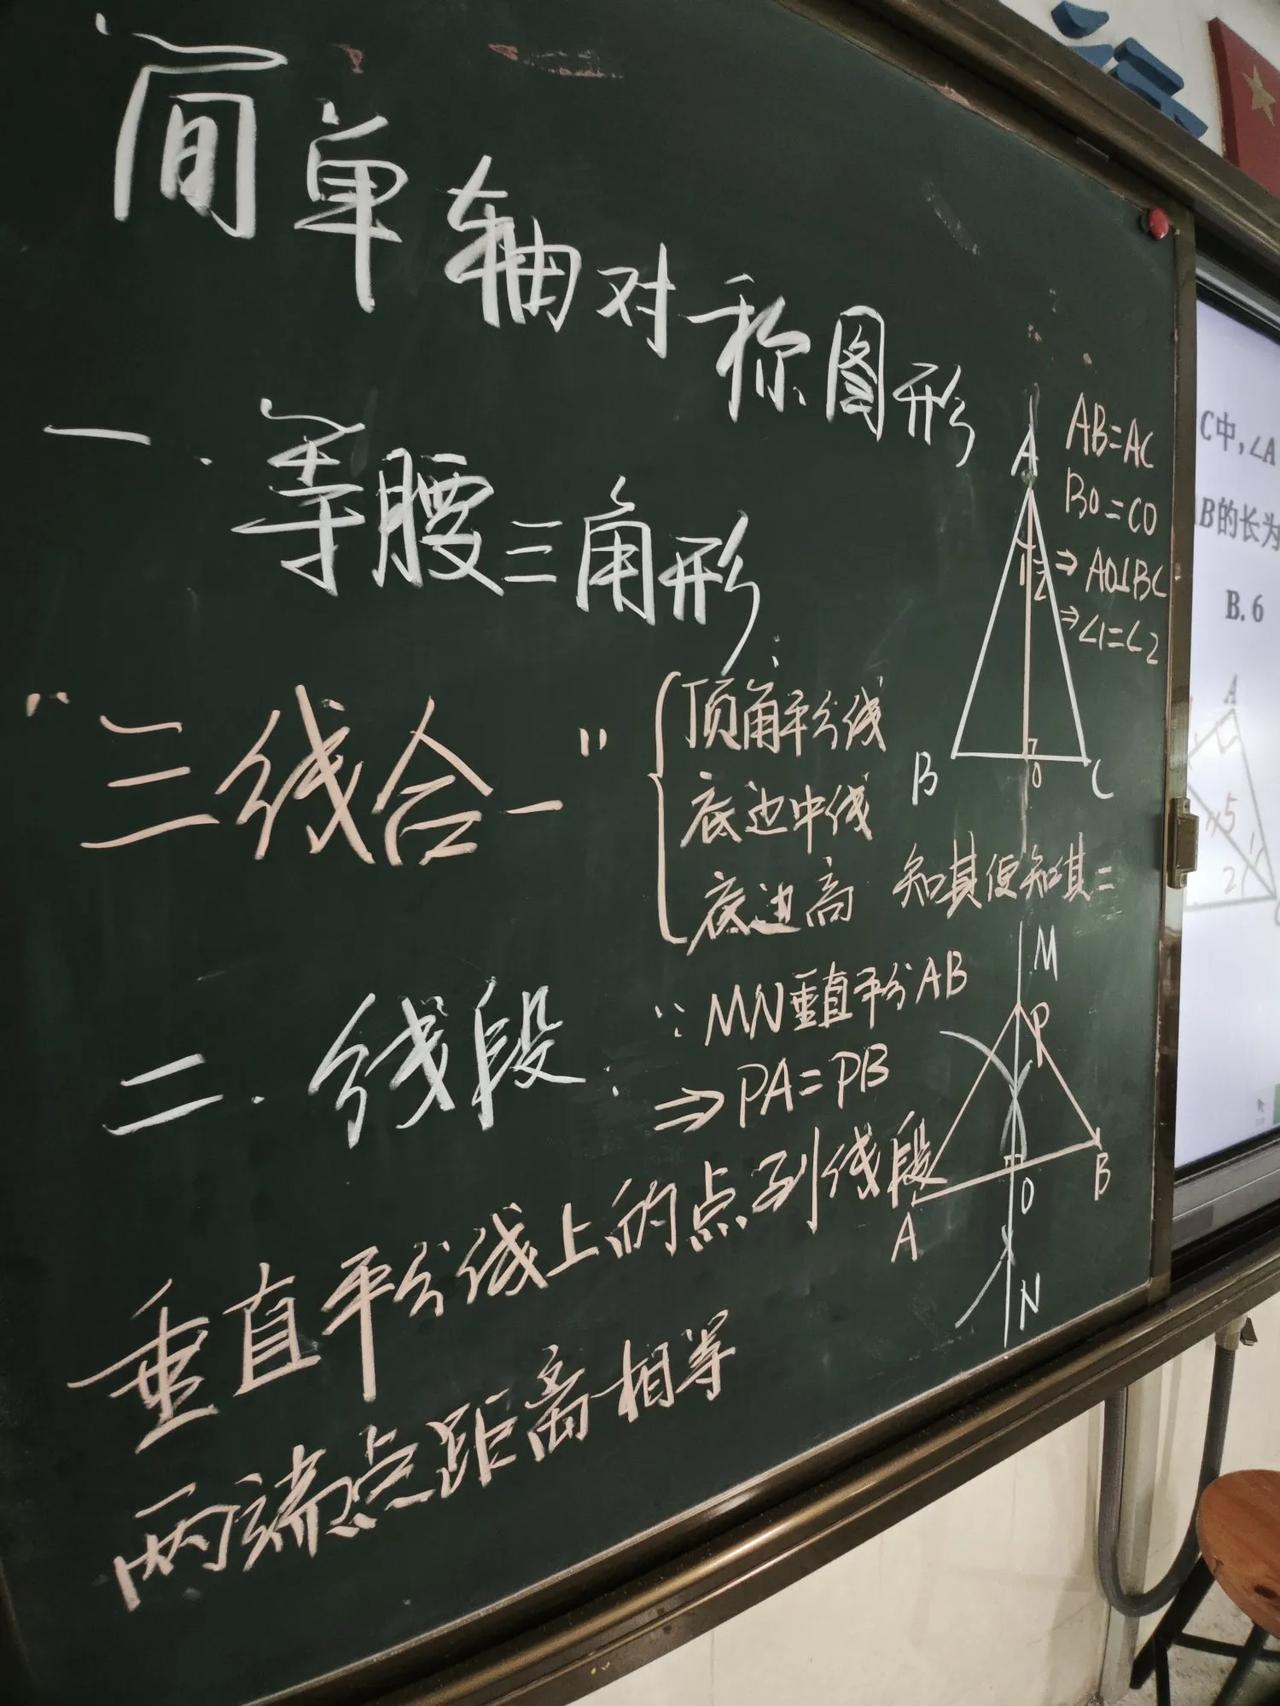 简单轴对称图形
一.等腰三角形:
“三线合一”
顶角平分线
底边中线
底边高
知其一便知其二
A
AB=AC
BO=CO
⇒AO⊥BC
⇒∠1=∠2
1
2
B
O
C
二.线段:
∵MN垂直平分AB
⇒PA=PB
垂直平分线上的点到线段
两端点距离相等
M
P
A
O
B
N
C中,∠A
B的长为
B.6
A
5
2